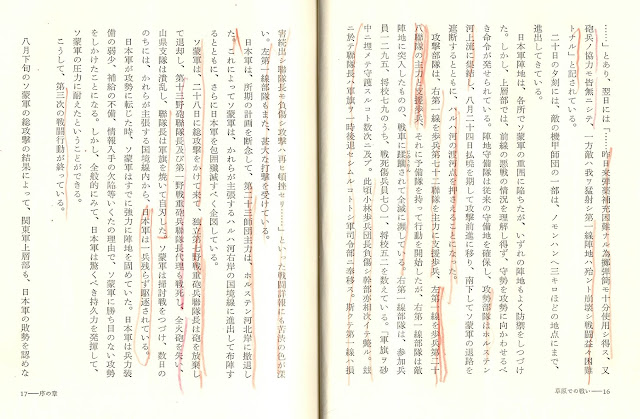 ……」とあり、翌日には「……昨日来弾薬補充困難ナル為擲弾筒モ十分使用シ得ス、又
砲兵ノ協力モ皆無ニシテ、一方敵ハ我ヲ猛射シ第一線陣地ハ殆ント崩壊シ戦闘益々困難
トナル」と記されている。
二十日の夕刻には、敵の機甲師団の一部は、ノモンハンへ三キロほどの地点にまで、
進出してきている。
日本軍陣地は、各所でソ蒙軍の重囲に陥ちたが、いずれの陣地もよく防禦をしつづけ
た。しかし、上層部では、前線の悪戦の情況を理解し得ず、守勢を攻勢に向かわせるべ
き命令が発せられている。陣地守備隊は従来の守備地を確保し、攻勢部隊はホルステン
河上流に集結し、八月二十四日払暁を期して攻撃前進に移り、南下してソ蒙軍の退路を
遮断するとともに、ハルハ河の渡河点を押さえることになった。
攻撃部隊は、右第一線を歩兵第七十二聯隊を主力に支援歩兵、左第一線を歩兵第二十
八聯隊の主力と支援歩兵、それに予備隊を持って行動を開始したが、右第一線部隊は敵
陣地に突入したものの、戦車に蹂躙されて全滅に瀕している。右第一線部隊は、参加兵
員一二九五、将校七九のうち、戦死傷兵員七〇一、将校五二を数えている。「軍旗ヲ砂
中ニ埋メテ守護スルコト数次ニ及ブ。此間小林歩兵団長負傷シ幹部亦相次イデ斃ル。茲
ニ於テ聯隊長ハ軍旗ヲ一時後退セシムルコトトシ軍司令部ニ奉移ス。斯クテ第一線ハ損
草原での戦い——16
害続出シ聯隊長モ負傷シ攻撃ハ再ヒ頓挫セリ……」といった戦闘詳報にも苦渋の色が深
い。左第一線部隊もまた、甚大な打撃を受けている。
日本軍は、所期の計画を断念して、第二十三師団主力は、ホルステン河北岸に撤退し
た。これによってソ蒙軍は、かれらが主張するハルハ河右岸の国境線に進出して布陣す
るとともに、さらに日本軍を包囲殲滅すべく企図している。
ソ蒙軍は、二十八日に総攻撃をかけて来て、独立第七野戦重砲兵聯隊長は砲を放棄し
て退却し、第十三野砲聯隊長及び第一野戦重砲兵聯隊長代理も戦死し、全火砲を失い、
山県支隊は潰乱し、聯隊長は軍旗を焼いて自刃した。ソ蒙軍は掃討戦をつづけ、数日の
のちには、かれらが主張する国境線内から、日本軍は一兵残らず駆逐されている。
日本軍が攻勢に転じた時、ソ蒙軍はすべに強力に陣地を固めていた。日本軍は兵力装
備の弱少、補給の不備、情報入手の欠陥等いくたの理由で、ソ蒙軍に勝ち目のない攻勢
をしかけたことになる。しかし、全般的にみて、日本軍は驚くべき持久力を発揮して、
ソ蒙軍の圧力に耐えたということができる。
こうして、第三次の戦闘行動が終っている。
八月下旬のソ蒙軍の総攻撃の結果によって、関東軍上層部も、日本軍の敗勢を認めな
17——序の章